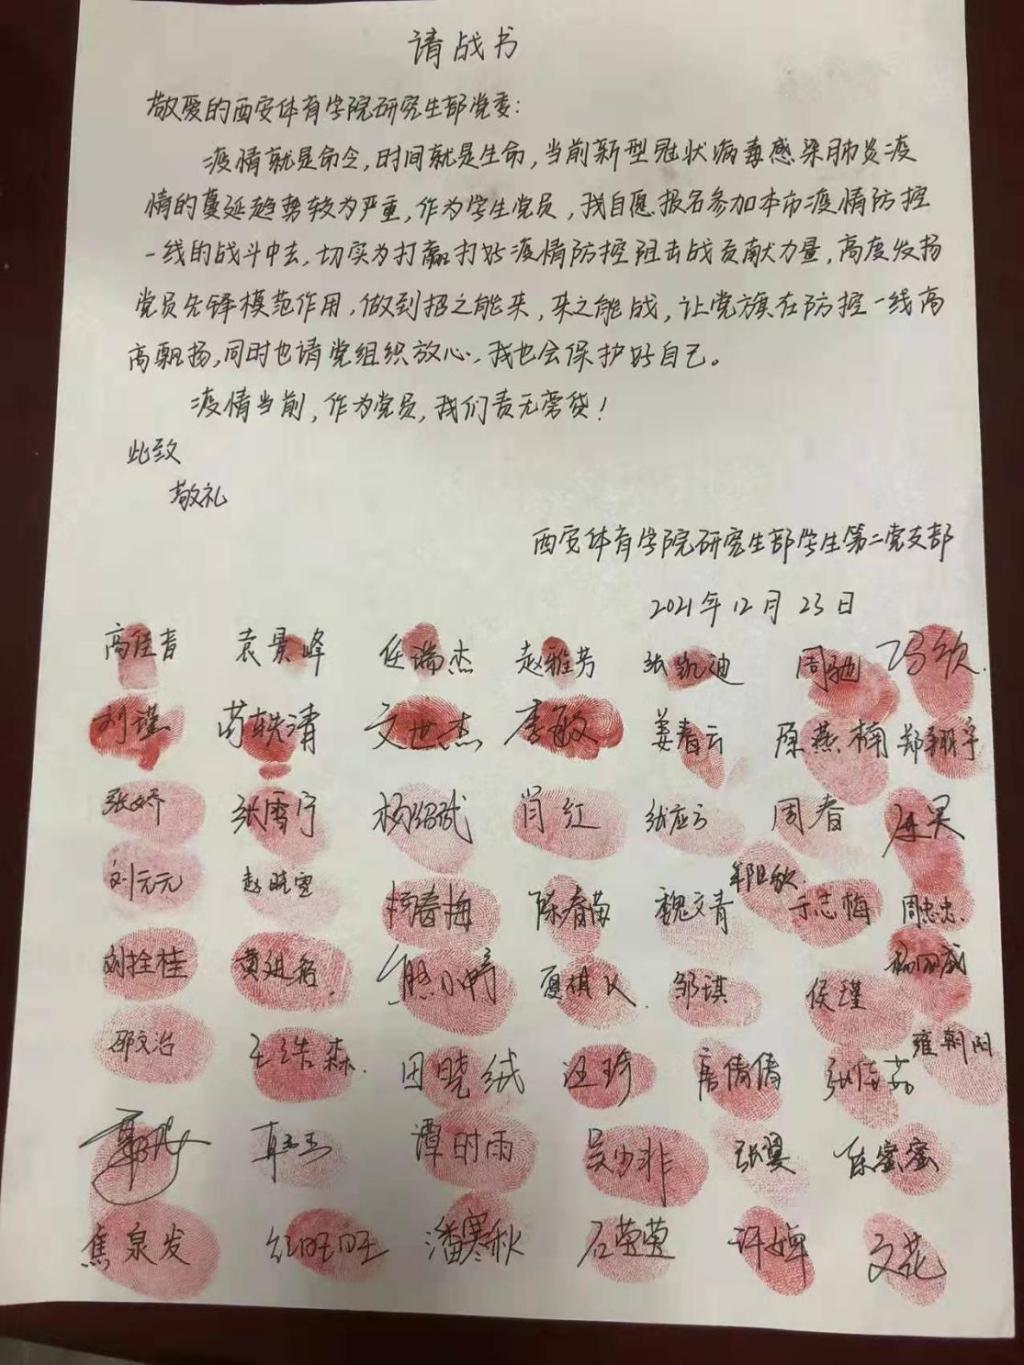 请战书
敬爱的西安体育学院研究生部党委：
疫情就是命令，时间就是生命，当前新型冠状病毒感染肺炎疫
情的蔓延趋势较为严重，作为学生党员，我自愿报名参加本市疫情防控
一线的战斗中去，切实为打赢打好疫情防控阻击战贡献力量，高度发扬
党员先锋模范作用，做到招之能来，来之能战，让党旗在防控一线高
高飘扬，同时也请党组织放心，我也会保护好自己。
疫情当前，作为党员，我们责无旁贷！
此致
敬礼
西安体育学院研究生部学生第二党支部
2021年12月23日
高佳音 袁景峰 任瑞杰 赵雅芳 张凯迪 周驰 冯欣
刘瑾 苟轶清 文世杰 李敏 姜春云 原燕楠 郑翔宇
张娇 张雪宁 杨绍武 闫红 张应云 周春
刘元元 赵晓雪 春梅 陈春苗 魏文青 于志梅 周忠忠
刘拴桂 黄廷名 熊小婷 夏棋 邹琪 侯瑾
邵文治 王浩森 田晓绒 汪琦 席倩倩 张倩茹 雍朝阳
谭时雨 吴少非 张昊 陈蜜蜜
焦泉发 红旺旺 潘寒秋 石莹莹 许婵 文花